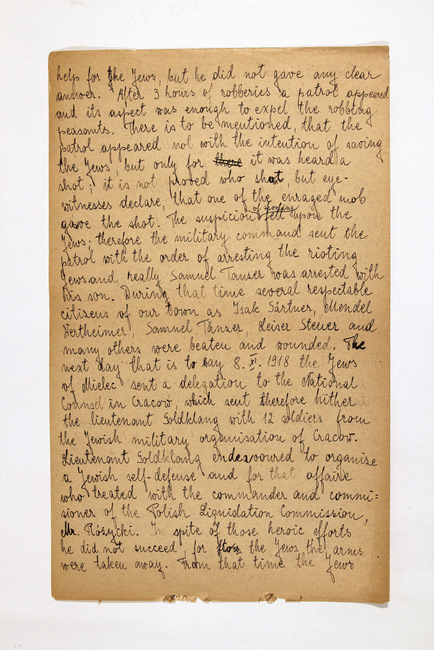 help for the Jews, but he did not gave any clear
answer. After 3 hours of robberies a patrol appeared
and its aspect was enough to expel the robbing
peasants. There is to be mentioned, that the
patrol appeared not with the intention of saving
the Jews, but only for there it was heard a
shot; it is not proved who shot, but eye-
witnesses declare, that one of the enraged mob
gave the shot. The suspicion fell upon the
Jews; therefore the military command sent the
patrol with the order of arresting the rioting
Jews and really Samuel Tanser was arrested with
his son. During that time several respectable
citisens of our town as Isak Gärtner, Mendel
Wertheimer, Samuel Tanser, Leiser Steuer and
many others were beaten and wounded. The
next day that is to say 8. XI. 1918 the Jews
of Mielec sent a delegation to the National
Counsel in Cracow, which sent therefore hither
the lieutenant Goldklang with 12 soldiers from
the Jewish military organisation of Cracow.
Lieutenant Goldklang endeavoured to organise
a Jewish self-defense and for that affaire
who treated with the commander and commi=
sioner of the Polish Liquidation Commission,
Mr. Rósycki. In spite of those heroic efforts
he did not succeed, for the Jews the arms
were taken away. From that time the Jews